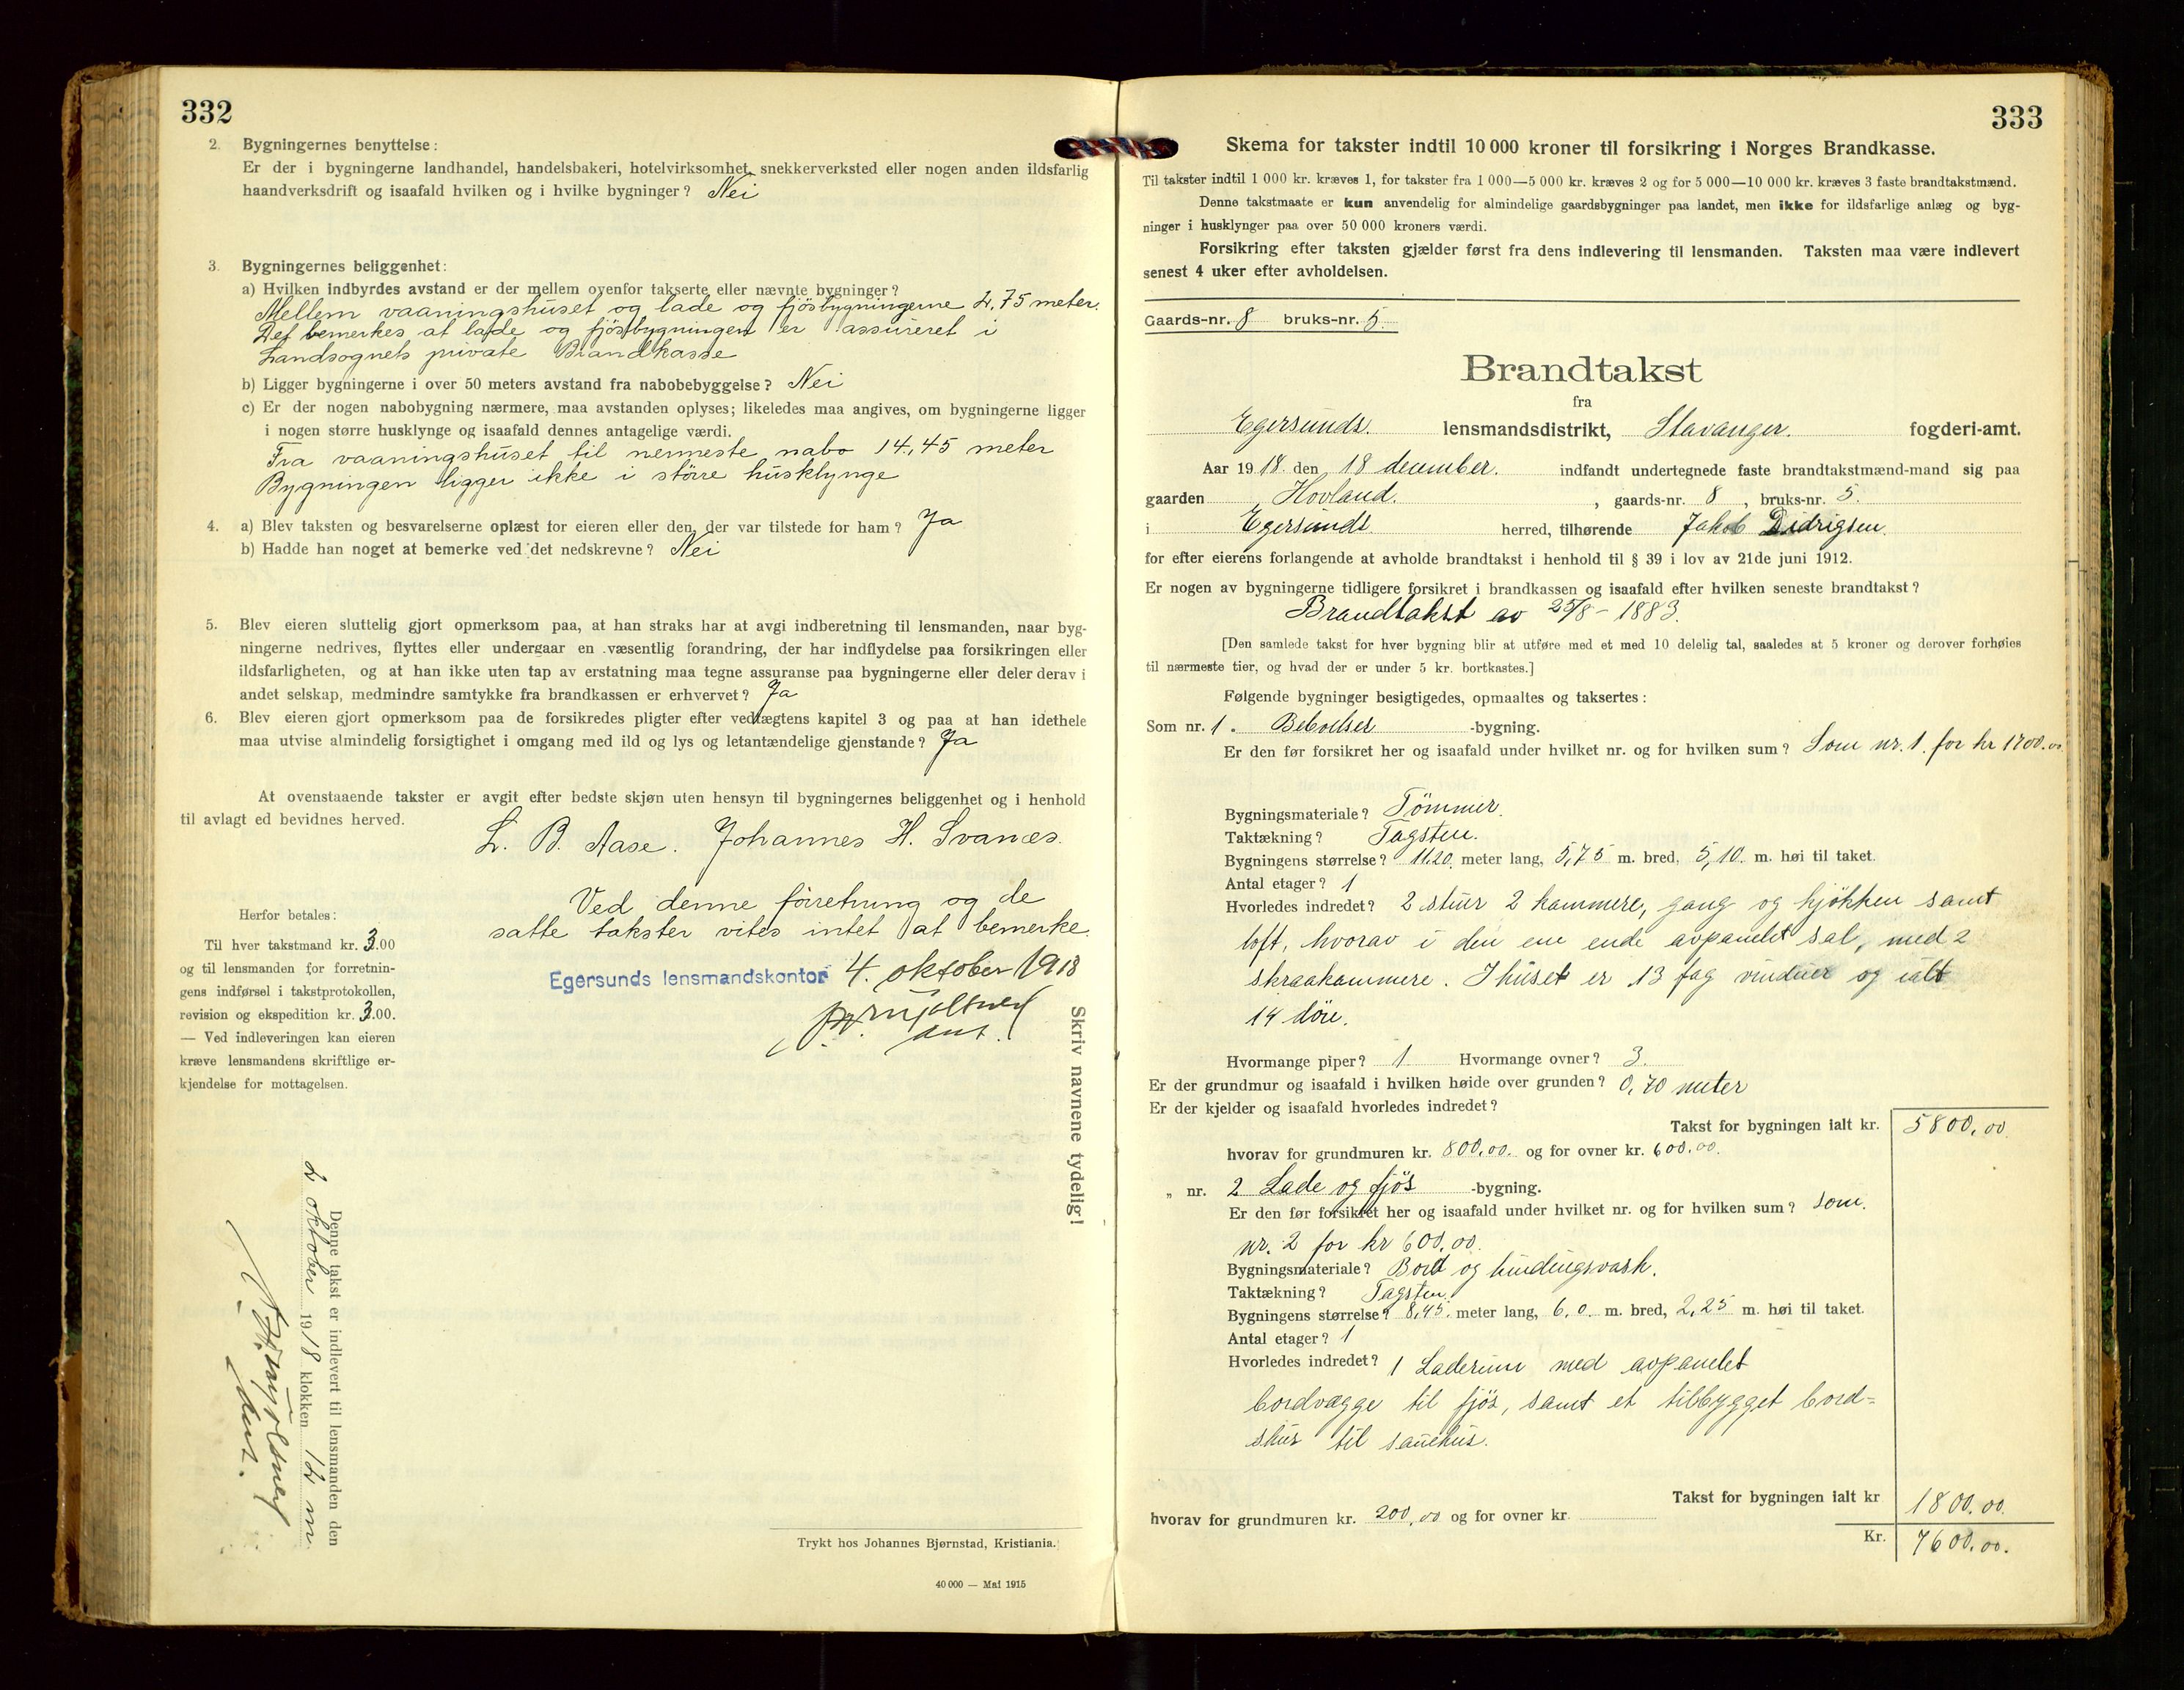 332
2. Bygningernes benyttelse:
Er der i bygningerne landhandel, handelsbakeri, hotelvirksomhet, snekkerverksted eller nogen anden ildsfarlig
haandverksdrift og isaafald hvilken og i hvilke bygninger? Nei
3. Bygningernes beliggenhet:
a) Hvilken indbyrdes avstand er der mellem ovenfor takserte eller nævnte bygninger?
Mellem vaaningshuset og lade og fjösbygningerne 2.75 meter.
Det bemerkes at lade og fjösbygningen er assureret i
Landsognets private Brandkasse
b) Ligger bygningerne i over 50 meters avstand fra nabobebyggelse? Nei
c) Er der nogen nabobygning nærmere, maa avstanden oplyses; likeledes maa angives, om bygningerne ligger
i nogen større husklynge og isaafald dennes antagelige værdi.
Fra vaaningshuset til nermeste nabo 14.45 meter
Bygningen ligger ikke i större husklynge
4. a) Blev taksten og besvarelserne oplæst for eieren eller den, der var tilstede for ham? Ja
b) Hadde han noget at bemerke ved det nedskrevne? Nei
5. Blev eieren sluttelig gjort opmerksom paa, at han straks har at avgi indberetning til lensmanden, naar byg-
ningerne nedrives, flyttes eller undergaar en væsentlig forandring, der har indflydelse paa forsikringen eller
ildsfarligheten, og at han ikke uten tap av erstatning maa tegne assuranse paa bygningerne eller deler derav i
andet selskap, medmindre samtykke fra brandkassen er erhvervet? Ja
6. Blev eieren gjort opmerksom paa de forsikredes pligter efter vedtægtens kapitel 3 og paa at han idethele
maa utvise almindelig forsigtighet i omgang med ild og lys og letantændelige gjenstande? Ja
At ovenstaaende takster er avgit efter bedste skjøn uten hensyn til bygningernes beliggenhet og i henhold
til avlagt ed bevidnes herved.
L. B. Aase. Johannes H. Svanes.
Ved denne forretning og de
satte takster vites intet at bemerke.
Egersunds lensmandskontor 4. oktober 1918
Herfor betales:
Til hver takstmand kr. 3.00
og til lensmanden for forretnin-
gens indførsel i takstprotokollen,
revision og ekspedition kr. 3.00.
— Ved indleveringen kan eieren
kræve lensmandens skriftlige er-
kjendelse for mottagelsen.
Skriv navnene tydelig!
Denne takst er indlevert til lensmanden den
2 oktober 1918 klokken 12 m
Trykt hos Johannes Bjørnstad, Kristiania.
40 000 — Mai 1915
333
Skema for takster indtil 10 000 kroner til forsikring i Norges Brandkasse.
Til takster indtil 1 000 kr. kræves 1, for takster fra 1 000—5 000 kr. kræves 2 og for 5 000—10 000 kr. kræves 3 faste brandtakstmænd.
Denne takstmaate er kun anvendelig for almindelige gaardsbygninger paa landet, men ikke for ildsfarlige anlæg og byg-
ninger i husklynger paa over 50 000 kroners værdi.
Forsikring efter taksten gjælder først fra dens indlevering til lensmanden. Taksten maa være indlevert
senest 4 uker efter avholdelsen.
Gaards-nr. 8 bruks-nr. 5.
Brandtakst
fra
Egersunds. lensmandsdistrikt, Stavanger. fogderi-amt.
Aar 1918. den 18 december. indfandt undertegnede faste brandtakstmænd-mand sig paa
gaarden Hovland. , gaards-nr. 8 , bruks-nr. 5.
i Egersunds herred, tilhørende Jakob Didrigsen.
for efter eierens forlangende at avholde brandtakst i henhold til § 39 i lov av 21de juni 1912.
Er nogen av bygningerne tidligere forsikret i brandkassen og isaafald efter hvilken seneste brandtakst?
Brandtakst av 25/8 - 1883.
[Den samlede takst for hver bygning blir at utføre med et med 10 delelig tal, saaledes at 5 kroner og derover forhøies
til nærmeste tier, og hvad der er under 5 kr. bortkastes.]
Følgende bygninger besigtigedes, opmaaltes og taksertes:
Som nr. 1. Beboelses -bygning.
Er den før forsikret her og isaafald under hvilket nr. og for hvilken sum? Som nr. 1. for kr 1700.00
Bygningsmateriale? Tömmer.
Taktækning? Tagsten.
Bygningens størrelse? 11,20 meter lang, 5,75 m. bred, 5,10. m. høi til taket.
Antal etager? 1
Hvorledes indredet? 2 stuer 2 kammere, gang og kjøkken samt
loft, hvorav i den ene ende avpanelet sal, med 2
skraakammere. I huset er 13 fag vinduer og ialt
14 döre.
Hvormange piper? 1 Hvormange ovner? 3.
Er der grundmur og isaafald i hvilken høide over grunden? 0,70 meter
Er der kjelder og isaafald hvorledes indredet?
Takst for bygningen ialt kr. 5800,00.
hvorav for grundmuren kr. 800,00. og for ovner kr. 600.00.
„ nr. 2 Lade og fjös -bygning.
Er den før forsikret her og isaafald under hvilket nr. og for hvilken sum? som.
nr. 2 for kr 600,00.
Bygningsmateriale? Bord og bindingsværk.
Taktækning? Tagsten.
Bygningens størrelse? 8,45. meter lang, 6,0. m. bred, 2,25 m. høi til taket.
Antal etager? 1
Hvorledes indredet? 1 Laderum med avpanelet
bordvægge til fjös, samt et tilbygget bord=
skur til sauehus.
Takst for bygningen ialt kr 1800.00.
hvorav for grundmuren kr. 200,00 og for ovner kr.
Kr. 7600.00.